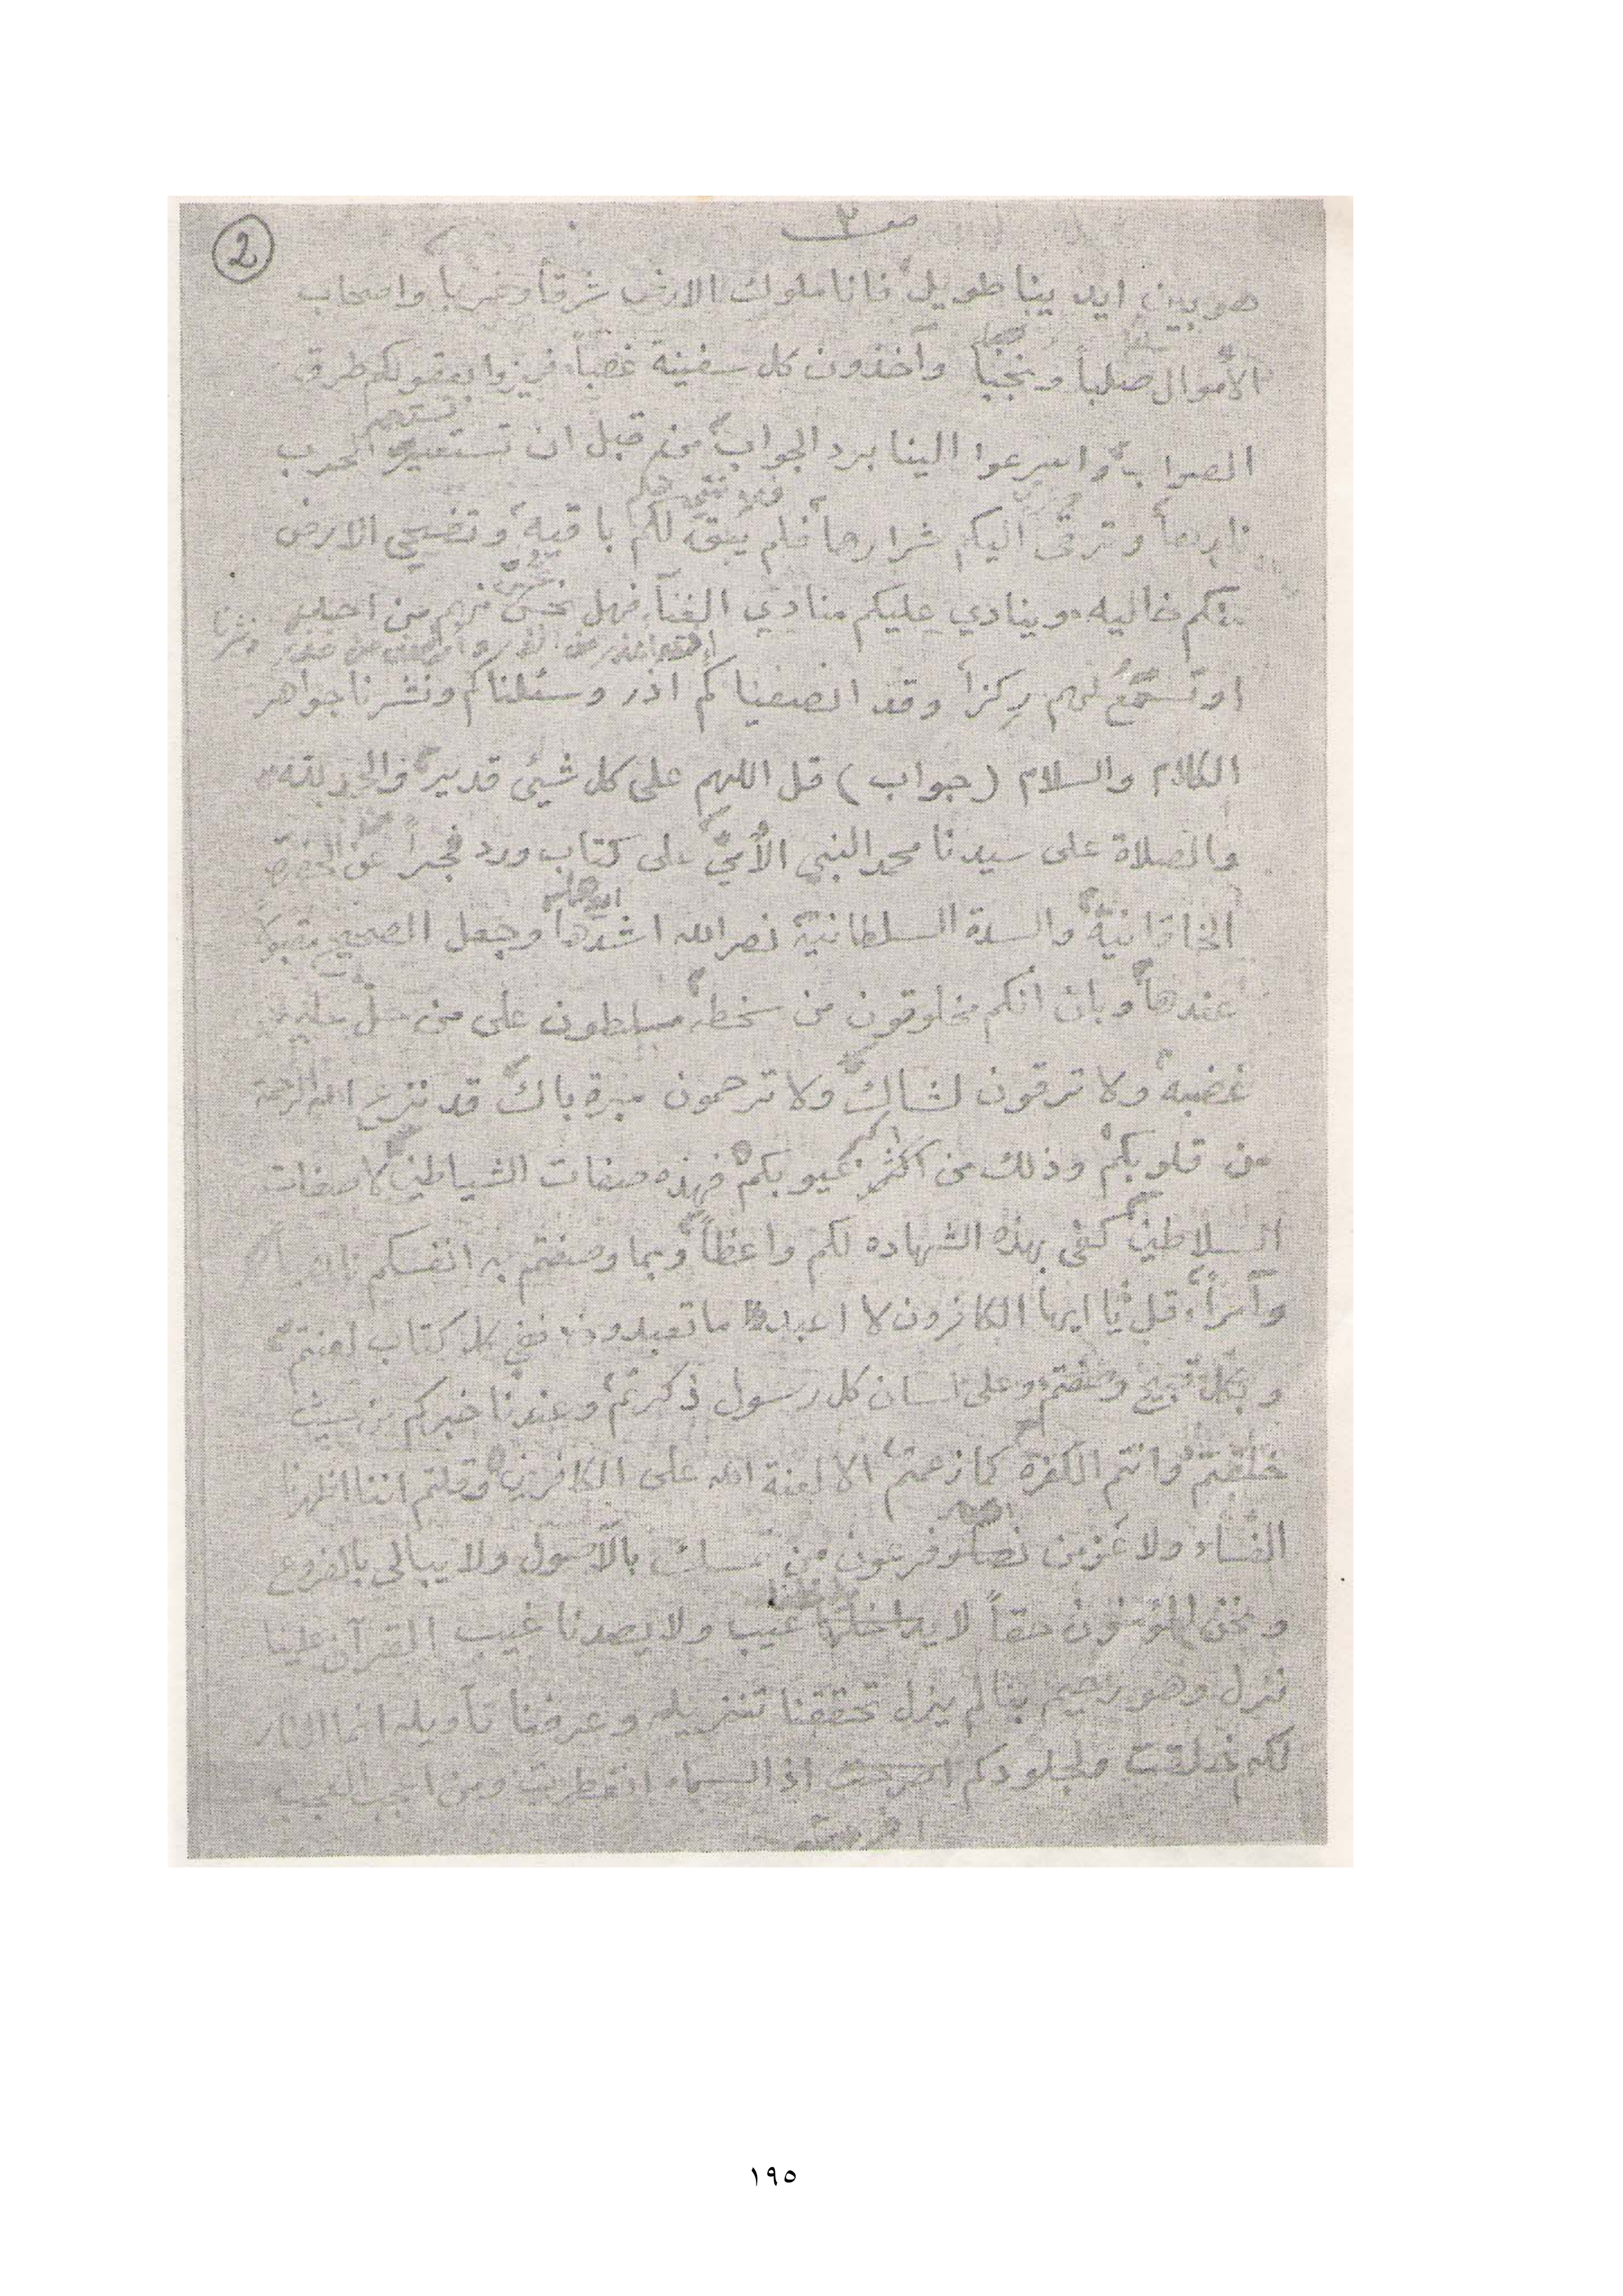 صـ ٣
2
هو بين ايدينا طويل فانا ملوك الارض شرقاً وغرباً واصحاب
الأموال صلباً ونجنباً وآخذون كل سفينة غصباً، فميزوا بعقولكم طرق
الصواب واسرعوا الينا برد الجواب من قبل ان تستعير الحرب
نارها وترقى اليكم شرارها فلم يبق لكم باقيه، وتضحي الارض
منكم خاليه، وينادي عليكم منادي الفنآ، فهل تحس منهم من احد
او تسمع لهم ركزاً وقد انصفناكم اذ وسئلناكم ونشرنا جواهر
الكلام والسلام (جواب) قل اللهم على كل شيئ قدير، والحمد لله
والصلاة على سيدنا محمد النبي الأمي على كتاب ورد فجراً عن الحضرة
الخاقانية والسدة السلطانية نصر الله اشدها وجعل الصحيح مقبولا
عندها وبان انكم مخلوقون من سخطه مسلطون على من حل عليه
غضبه ولا ترقون لشاك ولا ترحمون عبرة باك قد نزع الله الرحمة
من قلوبكم وذلك من اكثر عيوبكم فهذه صفات الشياطين لا صفات
السلاطين كفى بهذه الشهاده لكم واعظاً وبما وصفتم به انفسكم
وآمراً، قل يا ايها الكافرون لا اعبد ما تعبدون ففي كل كتاب لعنتم
وبكل قبيح وصفتم وعلى لسان كل رسول ذكرتم وعندنا خبركم من حيث
خلقتم وانتم الكفره كما زعمتم الا لعنة الله على الكافرين وقلتم اننا اظهرنا
الفساد ولا عز من فرعون من تمسك بالأصول ولا يبالي بالفروع
ونحن المؤمنون حقاً لا يداخلنا عيب ولا يصدنا غيب القرآن علينا
نزل وهو رحيم بنا لم يزل تحققنا تنزيله وعرفنا تأويله انما النار
لكم خلقت ولجلودكم اضرمت اذا السماء انفطرت ومن اعجب العجب
١٩٥